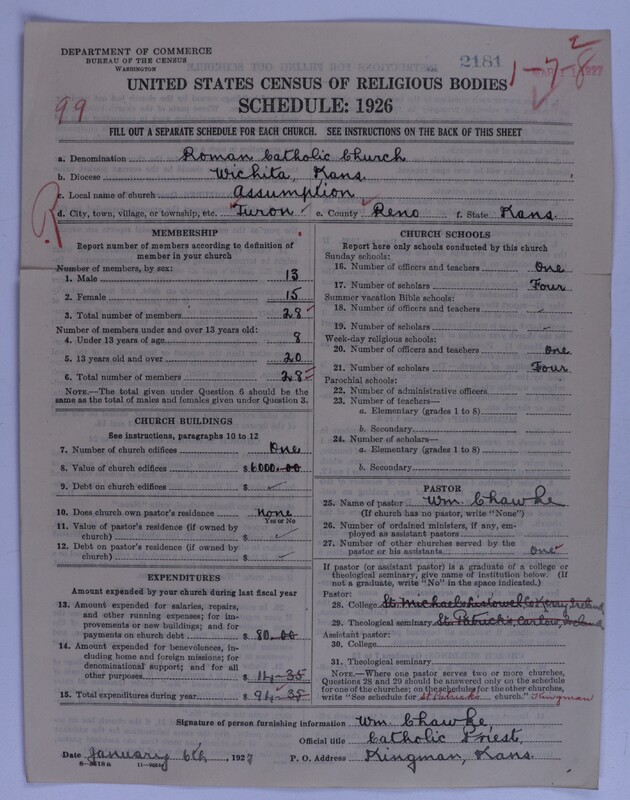 DEPARTMENT OF COMMERCE
BUREAU OF THE CENSUS
WASHINGTON
2181
1-7-8
2
99
UNITED STATES CENSUS OF RELIGIOUS BODIES
SCHEDULE: 1926
FILL OUT A SEPARATE SCHEDULE FOR EACH CHURCH. SEE INSTRUCTIONS ON THE BACK OF THIS SHEET
a. Denomination Roman Catholic Church
b. Diocese Wichita, Kans.
c. Local name of church Assumption
d. City, town, village, or township, etc. Turon e. County Reno f. State Kans.
R
MEMBERSHIP
Report number of members according to definition of
member in your church
Number of members, by sex:
1. Male 13
2. Female 15
3. Total number of members 28
Number of members under and over 13 years old:
4. Under 13 years of age 8
5. 13 years old and over 20
6. Total number of members 28
NOTE.—The total given under Question 6 should be the
same as the total of males and females given under Question 3.
CHURCH BUILDINGS
See instructions, paragraphs 10 to 12
7. Number of church edifices One
8. Value of church edifices $6000.00
9. Debt on church edifices $
10. Does church own pastor's residence None
Yes or No
11. Value of pastor's residence (if owned by
church) $
12. Debt on pastor's residence (if owned by
church) $
EXPENDITURES
Amount expended by your church during last fiscal year
13. Amount expended for salaries, repairs,
and other running expenses; for im-
provements or new buildings; and for
payments on church debt $80.00
14. Amount expended for benevolences, in-
cluding home and foreign missions; for
denominational support; and for all
other purposes $14-35
15. Total expenditures during year $94-35
CHURCH SCHOOLS
Report here only schools conducted by this church
Sunday schools:
16. Number of officers and teachers One
17. Number of scholars Four
Summer vacation Bible schools:
18. Number of officers and teachers
19. Number of scholars
Week-day religious schools:
20. Number of officers and teachers One
21. Number of scholars Four
Parochial schools:
22. Number of administrative officers
23. Number of teachers—
a. Elementary (grades 1 to 8)
b. Secondary
24. Number of scholars—
a. Elementary (grades 1 to 8)
b. Secondary
PASTOR
25. Name of pastor Wm. Chawke
(If church has no pastor, write "None")
26. Number of ordained ministers, if any, em-
ployed as assistant pastors
27. Number of other churches served by the
pastor or his assistants one
If pastor (or assistant pastor) is a graduate of a college or
theological seminary, give name of institution below. (If
not a graduate, write "No" in the space indicated.)
Pastor:
28. College St. Michaels Listowel Co Kerry, Ireland
29. Theological seminary St Patrick's, Carlow, Ireland
Assistant pastor:
30. College
31. Theological seminary
NOTE.—Where one pastor serves two or more churches,
Questions 28 and 29 should be answered only on the schedule
for one of the churches; on the schedule for the other churches,
write "See schedule for St Patricks church." Kingman
Signature of person furnishing information Wm. Chawke,
Official title Catholic Priest,
Date January 6th, 1927 P. O. Address Kingman, Kans.
8-3218a